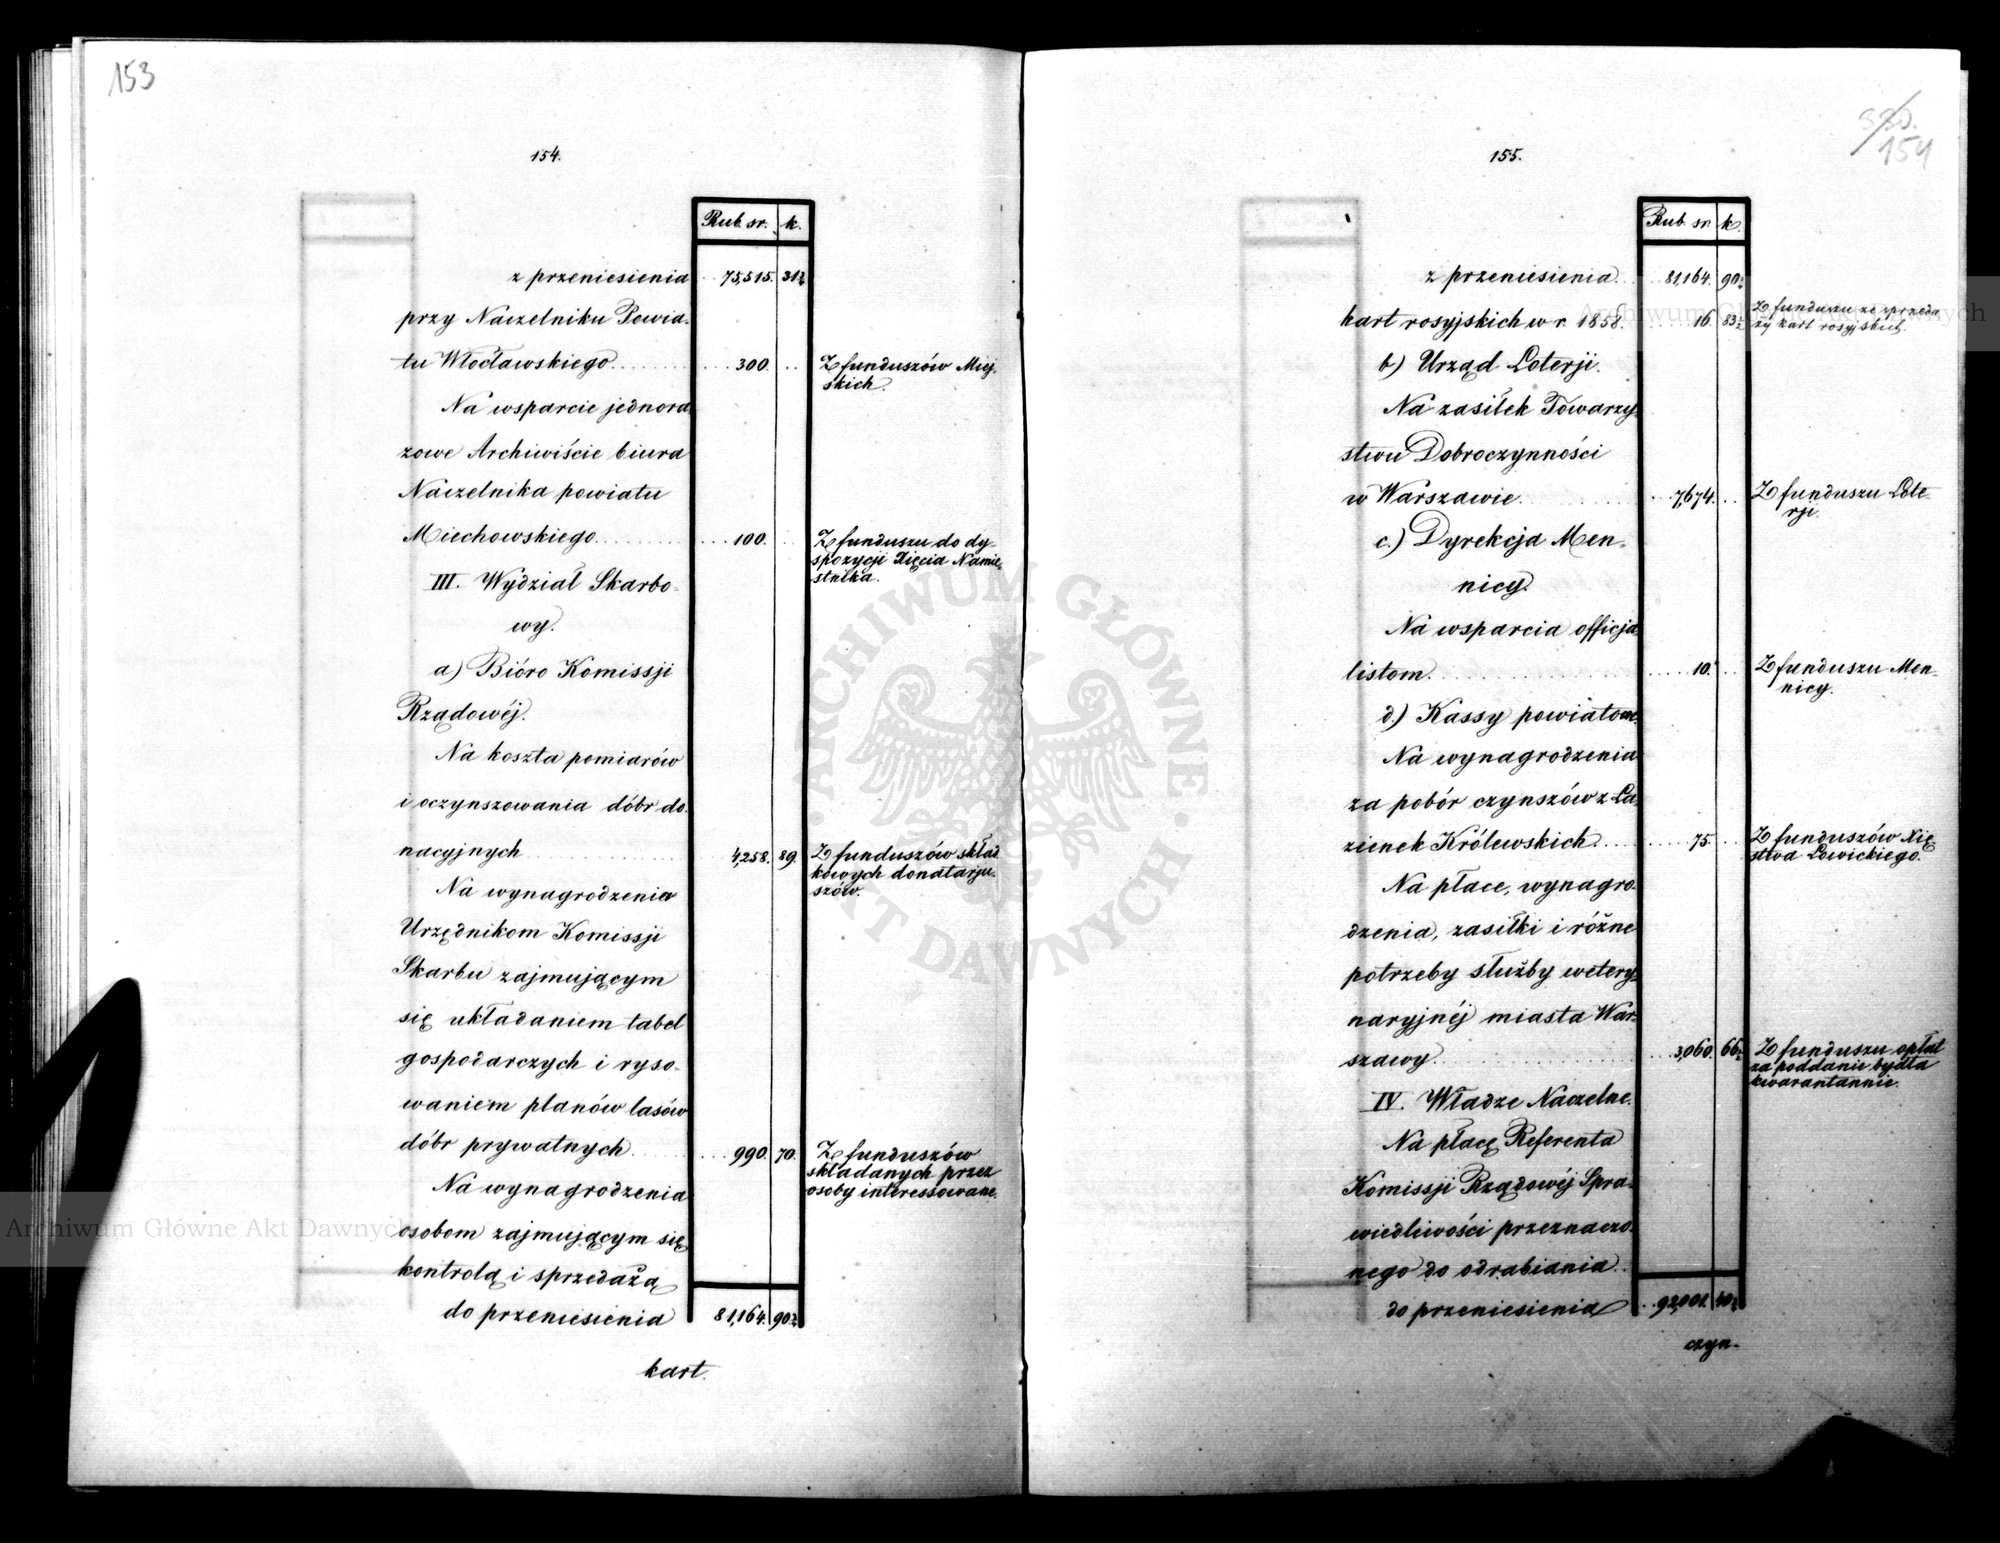 153
154.
Rub. sr. k.
z przeniesienia 75,515. 31½
przy Naczelniku Powia-
tu Włocławskiego 300. Z funduszów Miej-
skich.
Na wsparcie jednora
zowe Archiwiście biura
Naczelnika powiatu
Miechowskiego 100. Z funduszu do dy-
spozycji Xięcia Namie-
stnika.
III. Wydział Skarbo-
wy.
a) Bióro Komissji
Rządowéj.
Na koszta pomiarów
i oczynszowania dóbr do-
nacyjnych 4,258. 89. Z funduszów skład
kowych donatarju-
szów.
Na wynagrodzenia
Urzędnikom Komissji
Skarbu zajmującym
się układaniem tabel
gospodarczych i ryso-
waniem planów lasów
dóbr prywatnych 990. 70. Z funduszów
składanych przez
osoby interessowane.
Na wynagrodzenia
osobom zajmującym się
kontrolą i sprzedażą
do przeniesienia 81,164. 90½
kart.
330.
154
155.
Rub. sr. k.
z przeniesienia 81,164. 90½
kart rosyjskich w r. 1858. 16. 83½ Z funduszu ze sprzeda
ży kart rosyjskich.
b) Urząd Loterji.
Na zasiłek Towarzy-
stwu Dobroczynności
w Warszawie 7,674. Z funduszu Lote-
rji.
c.) Dyrekcja Men-
nicy.
Na wsparcia officja
listom. 10. Z funduszu Men-
nicy.
d.) Kassy powiatowe.
Na wynagrodzenia
za pobór czynszów z Ła
zienek Królewskich 75. Z funduszów Xię
stwa Łowickiego.
Na płace, wynagro-
dzenia, zasiłki i różne
potrzeby służby wetery-
naryjnéj miasta War-
szawy 3,060. 66½ Z funduszu opłat
za poddanie bydła
kwarantannie.
IV. Władze Naczelne.
Na płacę Referenta
Komissji Rządowéj Spra-
wiedliwości przeznaczo-
nego do odrabiania
do przeniesienia 92,001. 40½
czyn-
Archiwum Główne Akt Dawnych
Archiwum Główne Akt Dawnych
ARCHIWUM GŁÓWNE AKT DAWNYCH